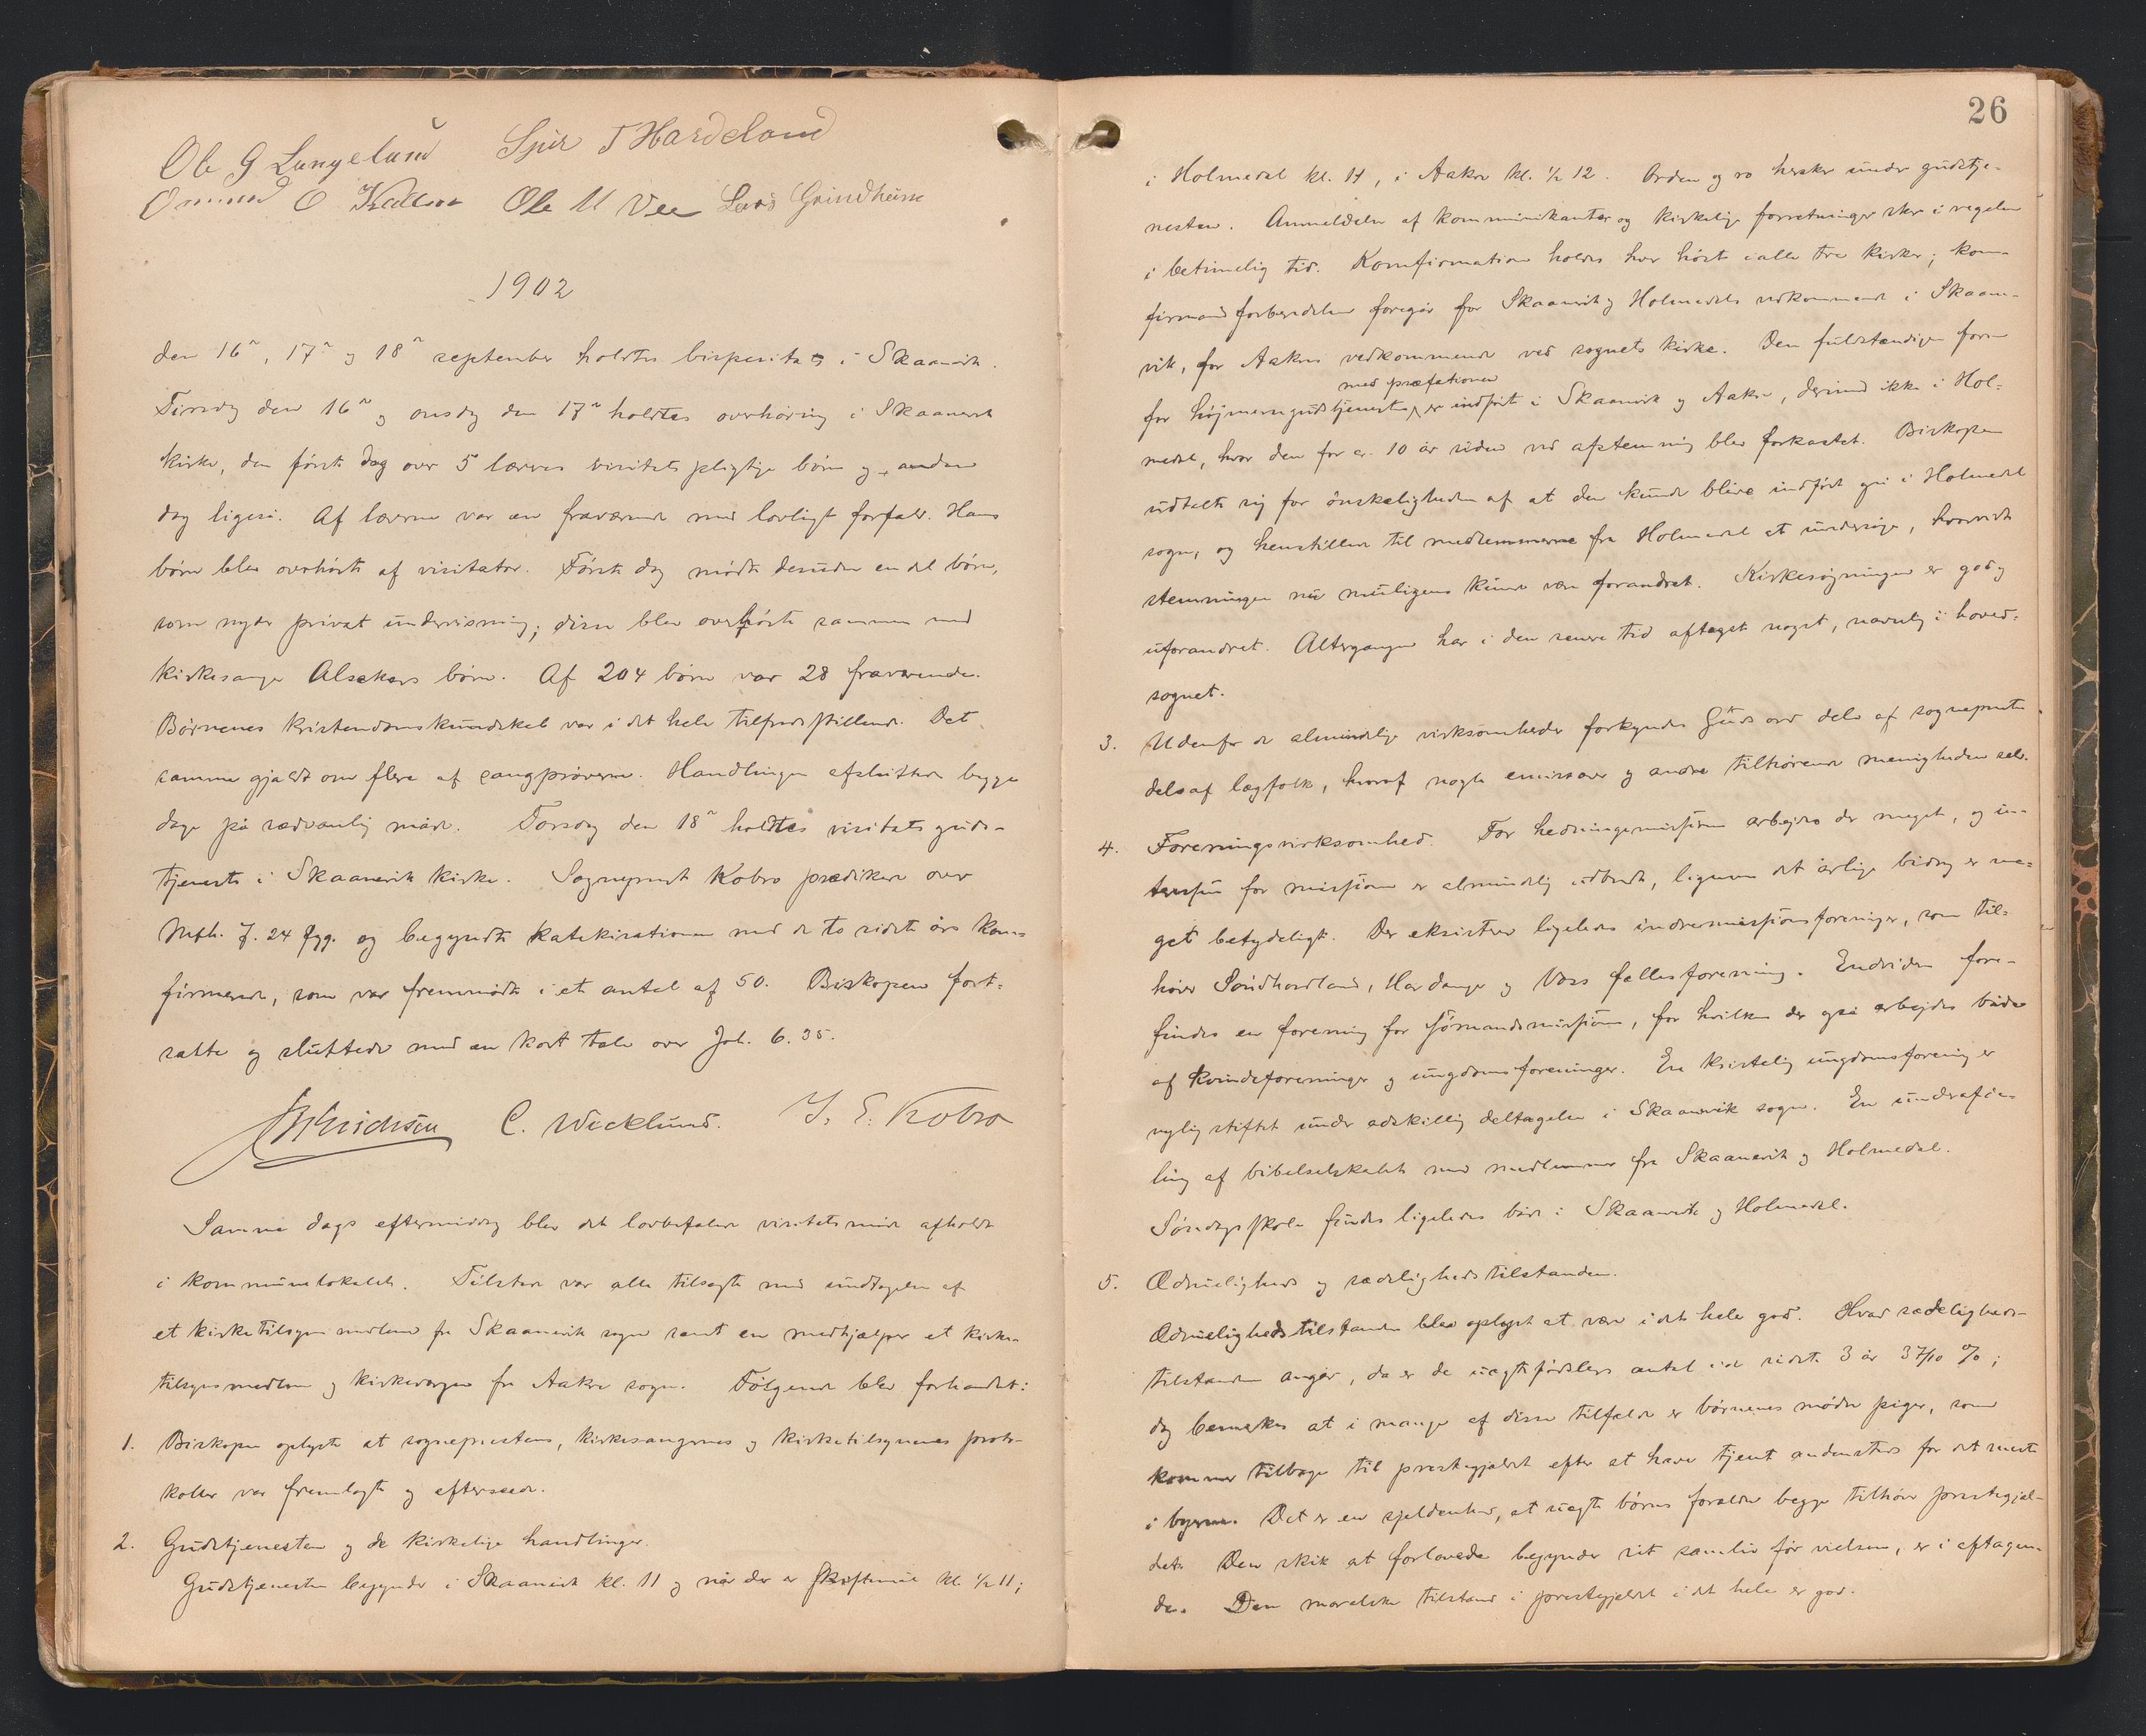 Ole G Langeland Sjur T Hardeland
Osmund O Ole M Vee Lars Grindheim
1902
den 16n, 17n og 18n september holdtes bispevisitats i Skaanevik.
Tirsdag den 16n og onsdag den 17n holdtes overhøring i Skaanevik
kirke, den første dag over 5 læreres visitatspligtige børn og anden
dag ligeså. Af lærerne var en fraværende med lovligt forfald. Hans
børn blev overhørte af visitator. Første dag mødte desuden en del børn,
som nyder privat undervisning; disse blev overhørte sammen med
kirkesanger Alsakers børn. Af 204 børn var 28 fraværende.
Børnenes kristendomskundskab var i det hele tilfredsstillende. Det
samme gjaldt om flere af sangprøverne. Handlingen afsluttedes begge
dage på sædvanlig måde. Torsdag den 18n holdtes visitatsguds-
tjeneste i Skaanevik kirke. Sogneprest Kobro prædikede over
Mth. 7. 24 fgg. og begyndte katekisationen med de to sidste års kon-
firmerede, som var fremmødte i et antal af 50. Biskopen fort-
satte og sluttede med en kort tale over Joh. 6. 35.
C. Wecklund. J. E. Kobro
Samme dags eftermiddag blev det lovbefalede visitatsmøde afholdt
i kommunelokalet. Tilstede var alle tilsagte med undtagelse af
et kirketilsynsmedlem fra Skaanevik sogn samt en medhjælper et kirke-
tilsynsmedlem og kirkeværgen fra Aakre sogn. Følgende blev forhandlet:
1. Biskopen oplyste at sogneprestens, kirkesangernes og kirketilsynenes proto-
koller var fremlagte og efterseede.
2. Gudstjenesten og de kirkelige handlinger.
Gudstjenesten begynder i Skaanevik kl. 11 og når der er skriftemål kl. ½ 11;
26
i Holmedal kl. 11, i Aakre kl. ½ 12. Orden og ro hersker under gudstje-
nesten. Anmeldelse af kommunikanter og kirkelige forretninger sker i regelen
i betimelig tid. Konfirmation holdes hver høst i alle tre kirker; kon-
firmandforberedelsen foregår for Skaanevik og Holmedals vedkommende i Skaane-
vik, for Aakres vedkommende ved sognets kirke. Den fuldstændige form
med præfationen
for højmessegudstjeneste er indført i Skaanevik og Aakre, derimod ikke i Hol-
medal, hvor den for ca. 10 år siden ved afstemning blev forkastet. Biskopen
udtalte sig for ønskeligheden af at den kunde blive indført også i Holmedal
sogn, og henstillede til medlemmerne fra Holmedal at undersøge, hvorvidt
stemningen nu muligens kunde være forandret. Kirkesøgningen er god og
uforandret. Altergangen har i den senere tid aftaget noget, navnlig i hoved-
sognet.
3. Udenfor de almindelige virksomheder forkyndes Guds ord dels af sogneprest
dels af lægfolk, hvoraf nogle emissærer og andre tilhørende menigheden selv.
4. Foreningsvirksomhed. For hedningemissionen arbejdes der meget, og in-
teressen for missionen er almindelig udbredt, ligesom det årlige bidrag er me-
get betydeligt. Der eksisterer ligeledes indremissionsforeninger, som til-
hører Søndhordland, Hardanger og Voss fællesforening. Endvidere fore-
findes en forening for sømandsmissionen, for hvilken der også arbejdes både
af kvindeforeninger og ungdomsforeninger. En kristelig ungdomsforening er
nylig stiftet under adskillig deltagelse i Skaanevik sogn. En underafde-
ling af bibelselskabet med medlemmer fra Skaanevik og Holmedal.
Søndagsskole findes ligeledes både i Skaanevik og Holmedal.
5. Ædrueligheds og sædelighedstilstanden.
Ædruelighedstilstanden blev oplyst at være i det hele god. Hvad sædeligheds-
tilstanden angår, da er de uægte fødslers antal i de sidste 3 år 3 7/10 %;
dog bemerkes at i mange af disse tilfælde er børnenes mødre piger, som
kommer tilbage til prestegjældet efter at have tjent andensteds for det meste
i byerne. Det er en sjeldenhed, at uægte børns forældre begge tilhører prestegjæl-
det. Den skik at forlovede begynder sit samliv før vielsen, er i aftagen-
de. Den moralske tilstand i prestegjældet i det hele er god.